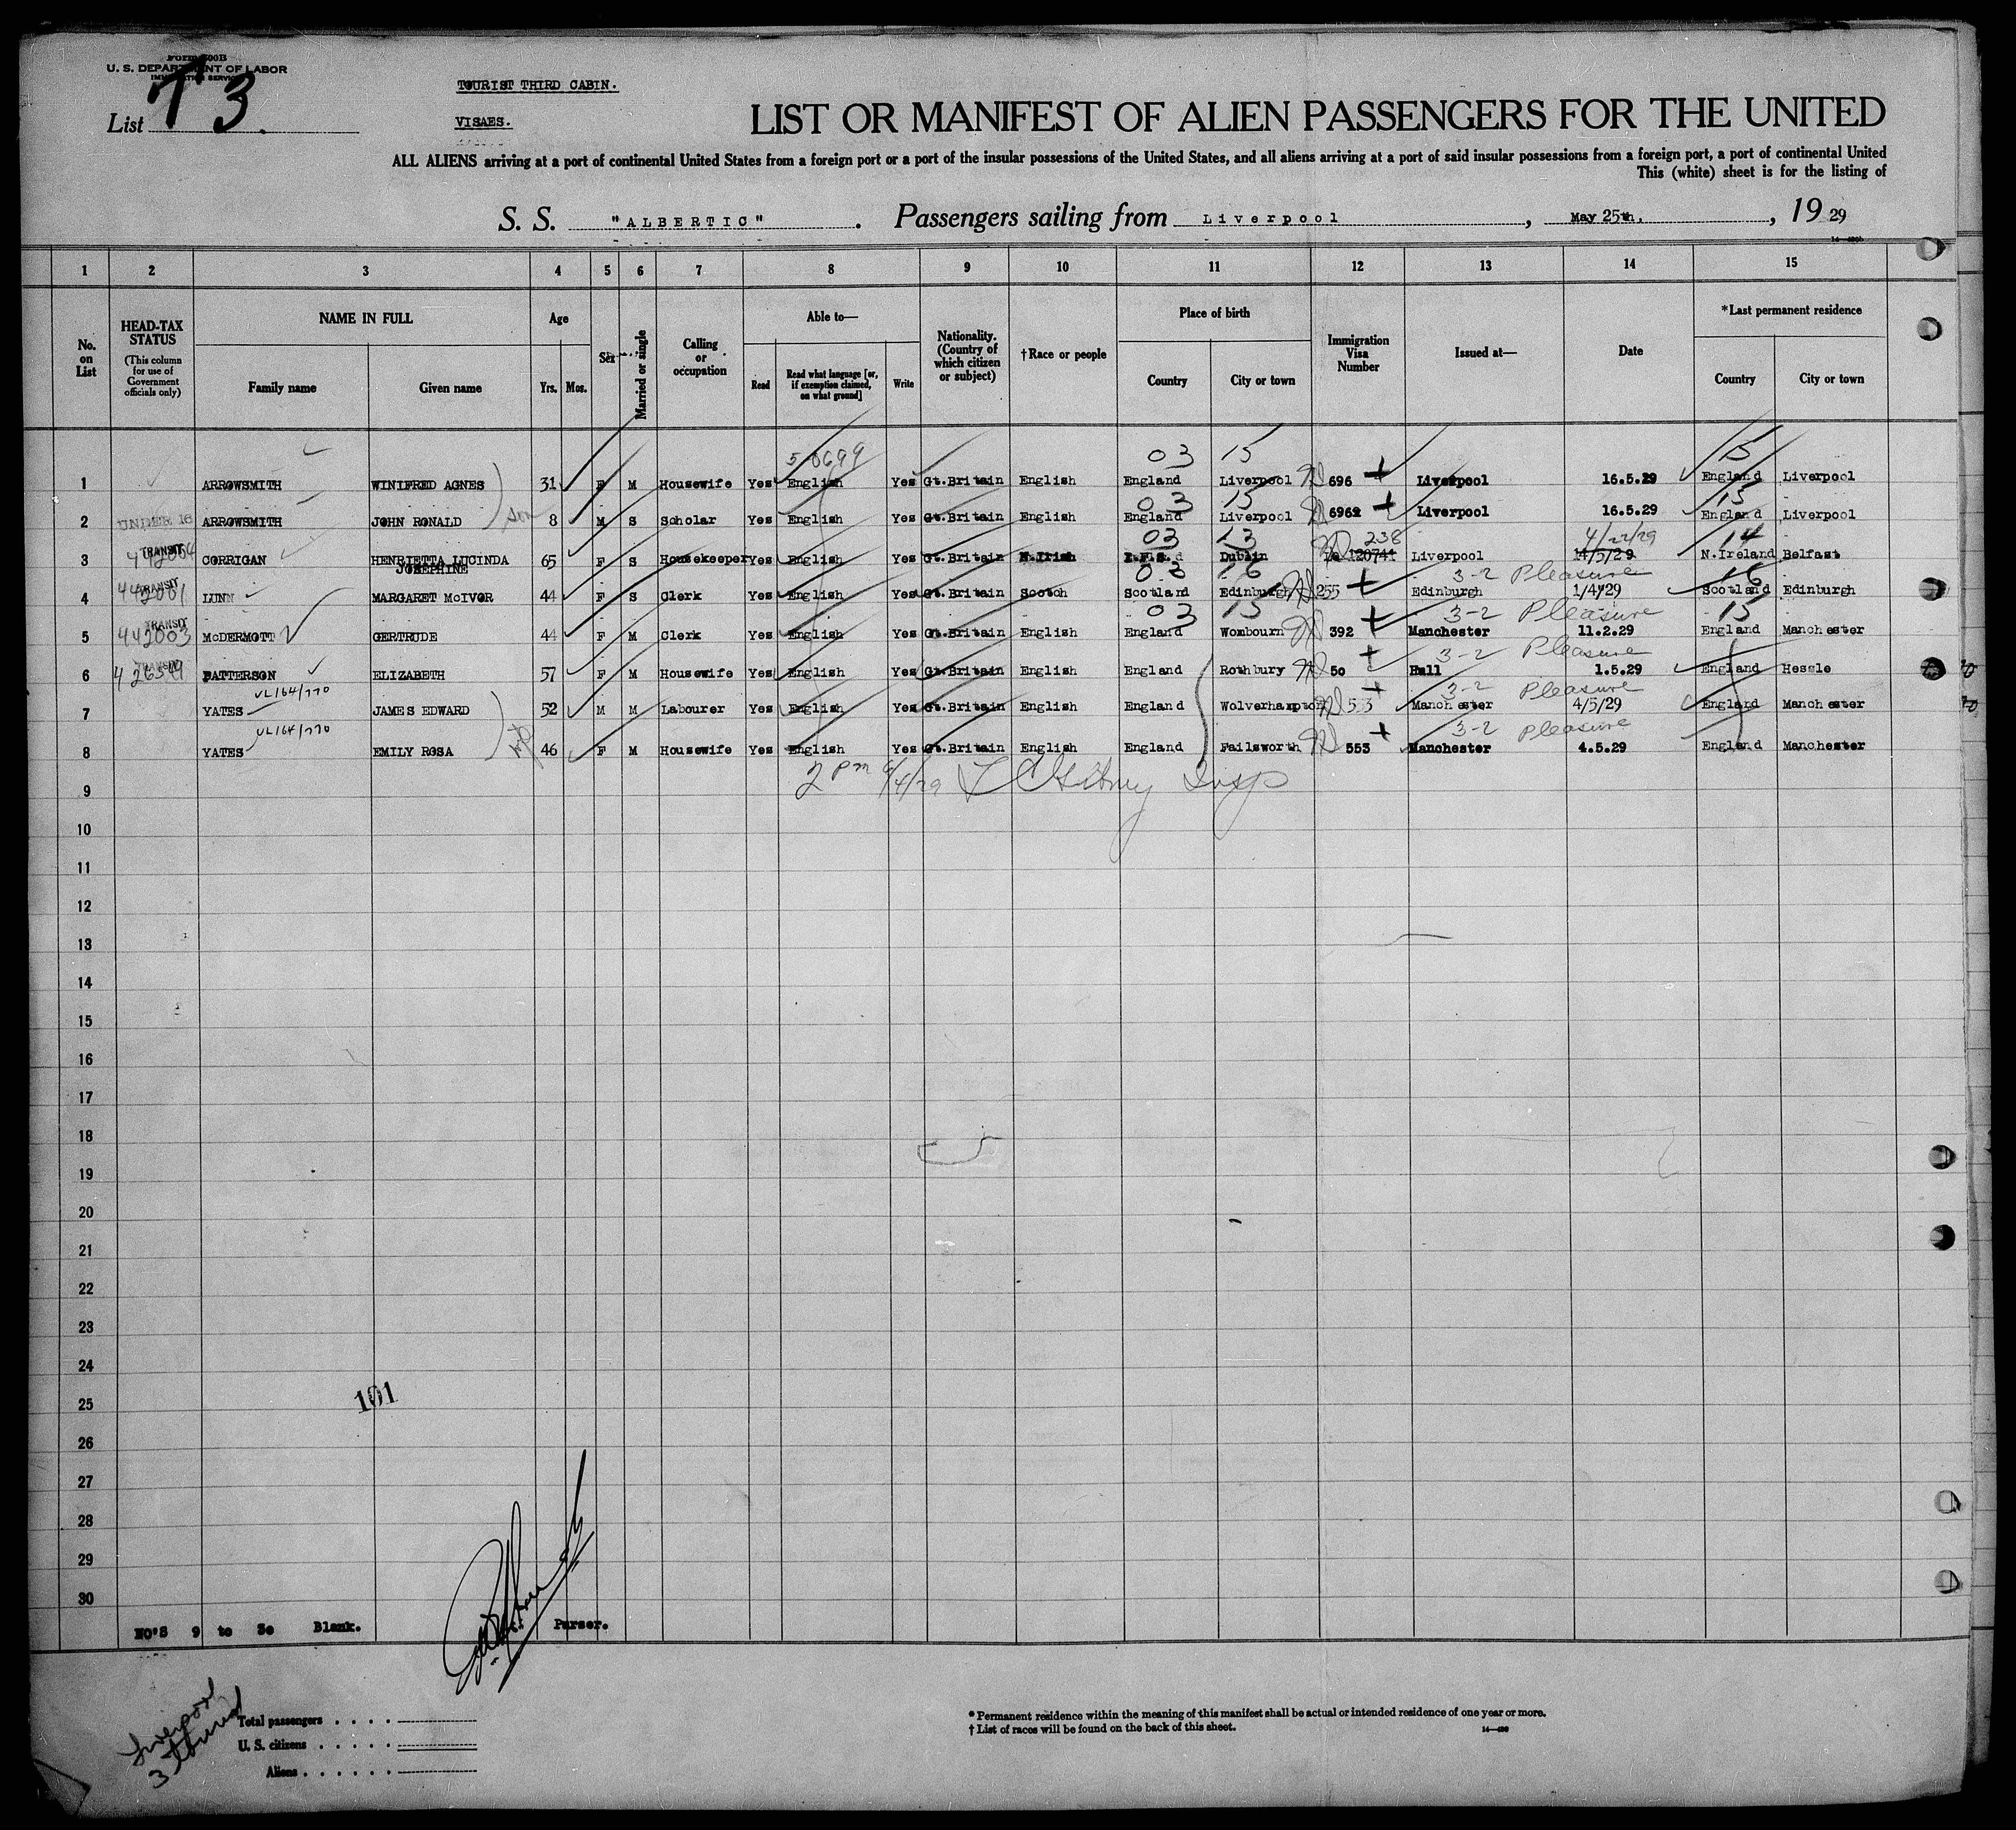 FORM 500B
U. S. DEPARTMENT OF LABOR
IMMIGRATION SERVICE
List T 3.
TOURIST THIRD CABIN.
VISAES.
LIST OR MANIFEST OF ALIEN PASSENGERS FOR THE UNITED
ALL ALIENS arriving at a port of continental United States from a foreign port or a port of the insular possessions of the United States, and all aliens arriving at a port of said insular possessions from a foreign port, a port of continental United
This (white) sheet is for the listing of
S. S. "ALBERTIC". Passengers sailing from Liverpool, May 25th., 19 29
1 2 3 4 5 6 7 8 9 10 11 12 13 14 15
No. on List
HEAD-TAX STATUS (This column for use of Government officials only)
NAME IN FULL Family name Given name
Age Yrs. Mos.
Sex
Married or single
Calling or occupation
Able to— Read Read what language [or, if exemption claimed, on what ground] Write
Nationality. (Country of which citizen or subject)
†Race or people
Place of birth Country City or town
Immigration Visa Number
Issued at—
Date
*Last permanent residence Country City or town
5-0699 03 15 15
1 ARROWSMITH WINIFRED AGNES 31 F M Housewife Yes English Yes Gt.Britain English England Liverpool 696 Liverpool 16.5.29 England Liverpool
03 15 15
2 UNDER 16 ARROWSMITH JOHN RONALD son 8 M S Scholar Yes English Yes Gt.Britain English England Liverpool 6962 Liverpool 16.5.29 England Liverpool
03 13 238 4/22/29 14
3 TRANSIT 442004 CORRIGAN HENRIETTA LUCINDA JOSEPHINE 65 F S Housekeeper Yes English Yes Gt.Britain N.Irish I.F.S. Dublin 120741 Liverpool 14/5/29 N.Ireland Belfast
03 16 3-2 Pleasure 16
4 TRANSIT 442001 LUNN MARGARET McIVOR 44 F S Clerk Yes English Yes Gt.Britain Scotch Scotland Edinburgh 255 Edinburgh 1/4/29 Scotland Edinburgh
03 15 3-2 Pleasure 15
5 TRANSIT 442003 McDERMOTT GERTRUDE 44 F M Clerk Yes English Yes Gt.Britain English England Wombourn 392 Manchester 11.2.29 England Manchester
3-2 Pleasure
6 TRANSIT PATTERSON ELIZABETH 57 F M Housewife Yes English Yes Gt.Britain English England Rothbury 50 Hull 1.5.29 England Hessle
VL164/770 3-2 Pleasure
7 YATES JAMES EDWARD 52 M M Labourer Yes English Yes Gt.Britain English England Wolverhampton 553 Manchester 4/5/29 England Manchester
VL164/770 3-2 Pleasure
8 YATES EMILY ROSA 46 F M Housewife Yes English Yes Gt.Britain English England Failsworth 553 Manchester 4.5.29 England Manchester
9 2 pm 6/4/29 Insp
10
11
12
13
14
15
16
17
18
19
20
21
22
23
24
25 101
26
27
28
29
30
NO'S 9 to 30 Blank. Purser.
Liverpool
3
Total passengers
U. S. citizens
Aliens
* Permanent residence within the meaning of this manifest shall be actual or intended residence of one year or more.
† List of races will be found on the back of this sheet.